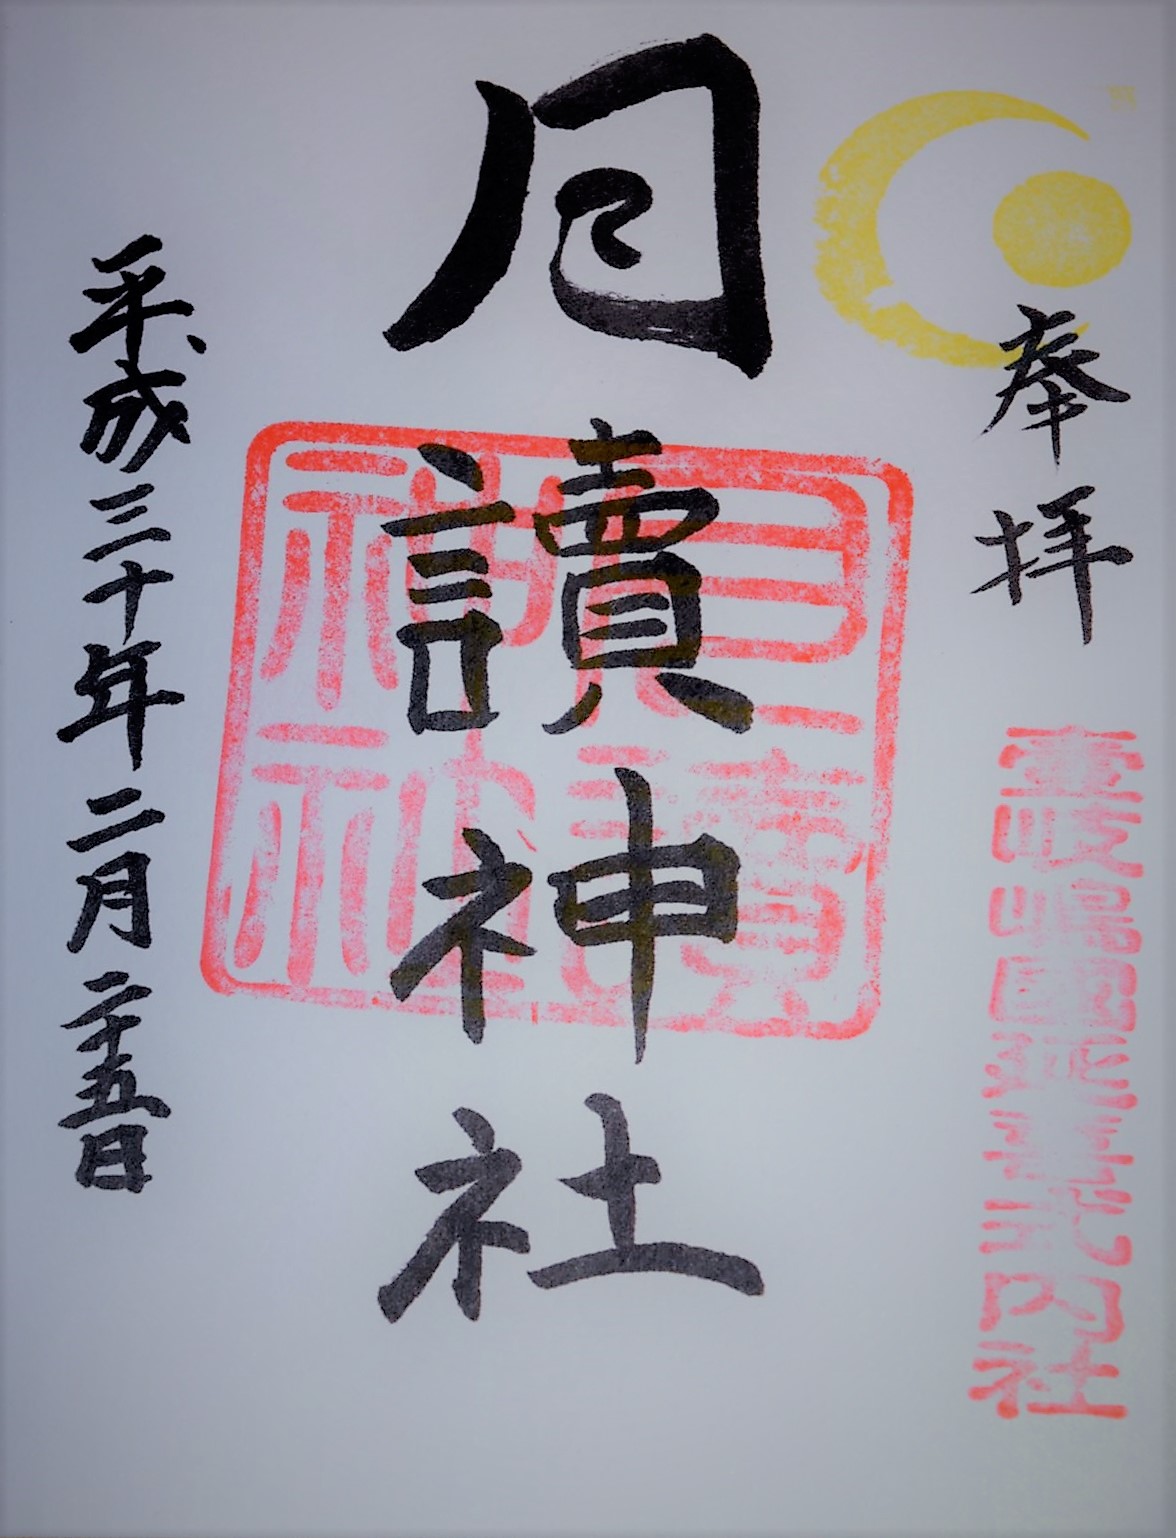 奉拝
壹岐嶋國延喜式内社
月讀神社
月讀神社
平成三十年二月二十五日